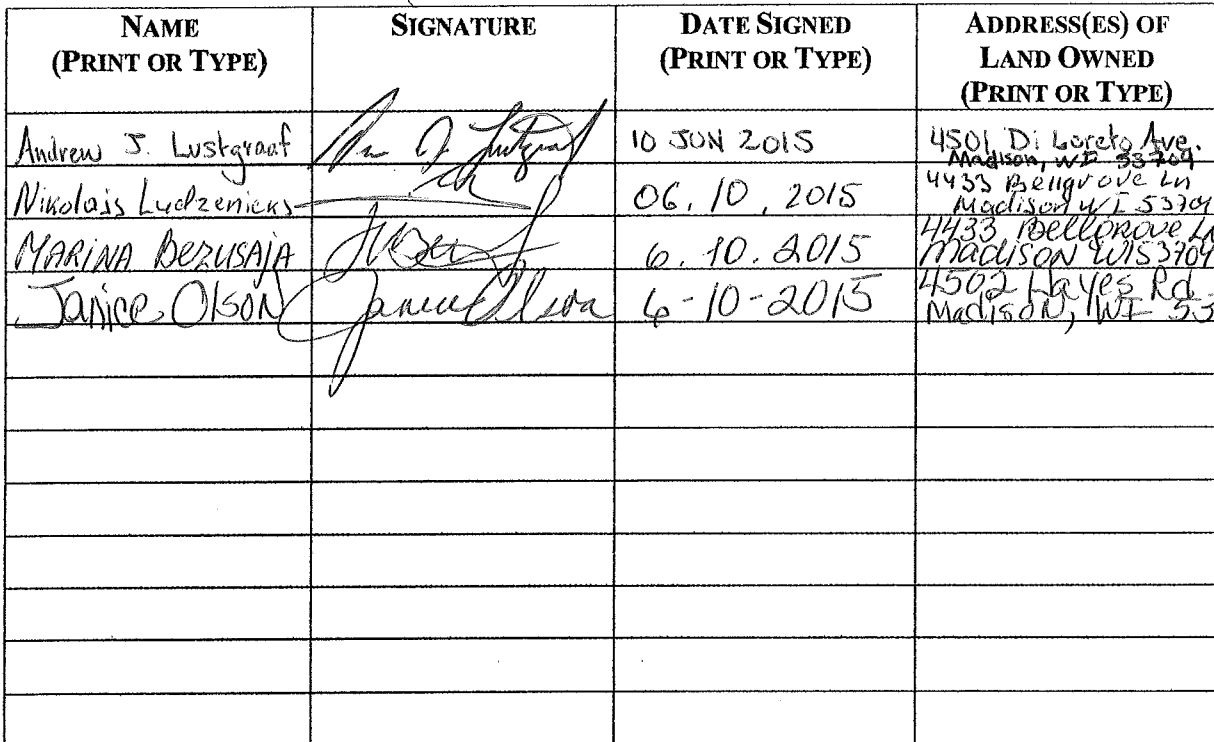 NAME
(PRINT OR TYPE)
SIGNATURE
DATE SIGNED
(PRINT OR TYPE)
ADDRESS(ES) OF
LAND OWNED
(PRINT OR TYPE)
Andrew J. Lustgraaf
10 JUN 2015
4501 Di Loreto Ave.
Madison, WI 53704
Nikolajs Ludzenieks
06.10.2015
4433 Bellgrove Ln
Madison WI 53704
MARINA BEZUSAJA
6.10.2015
4433 Bellgrove Ln
Madison WI 53704
Janice Olson
Janice Olson
6-10-2015
4502 Hayes Rd
Madison, WI 53